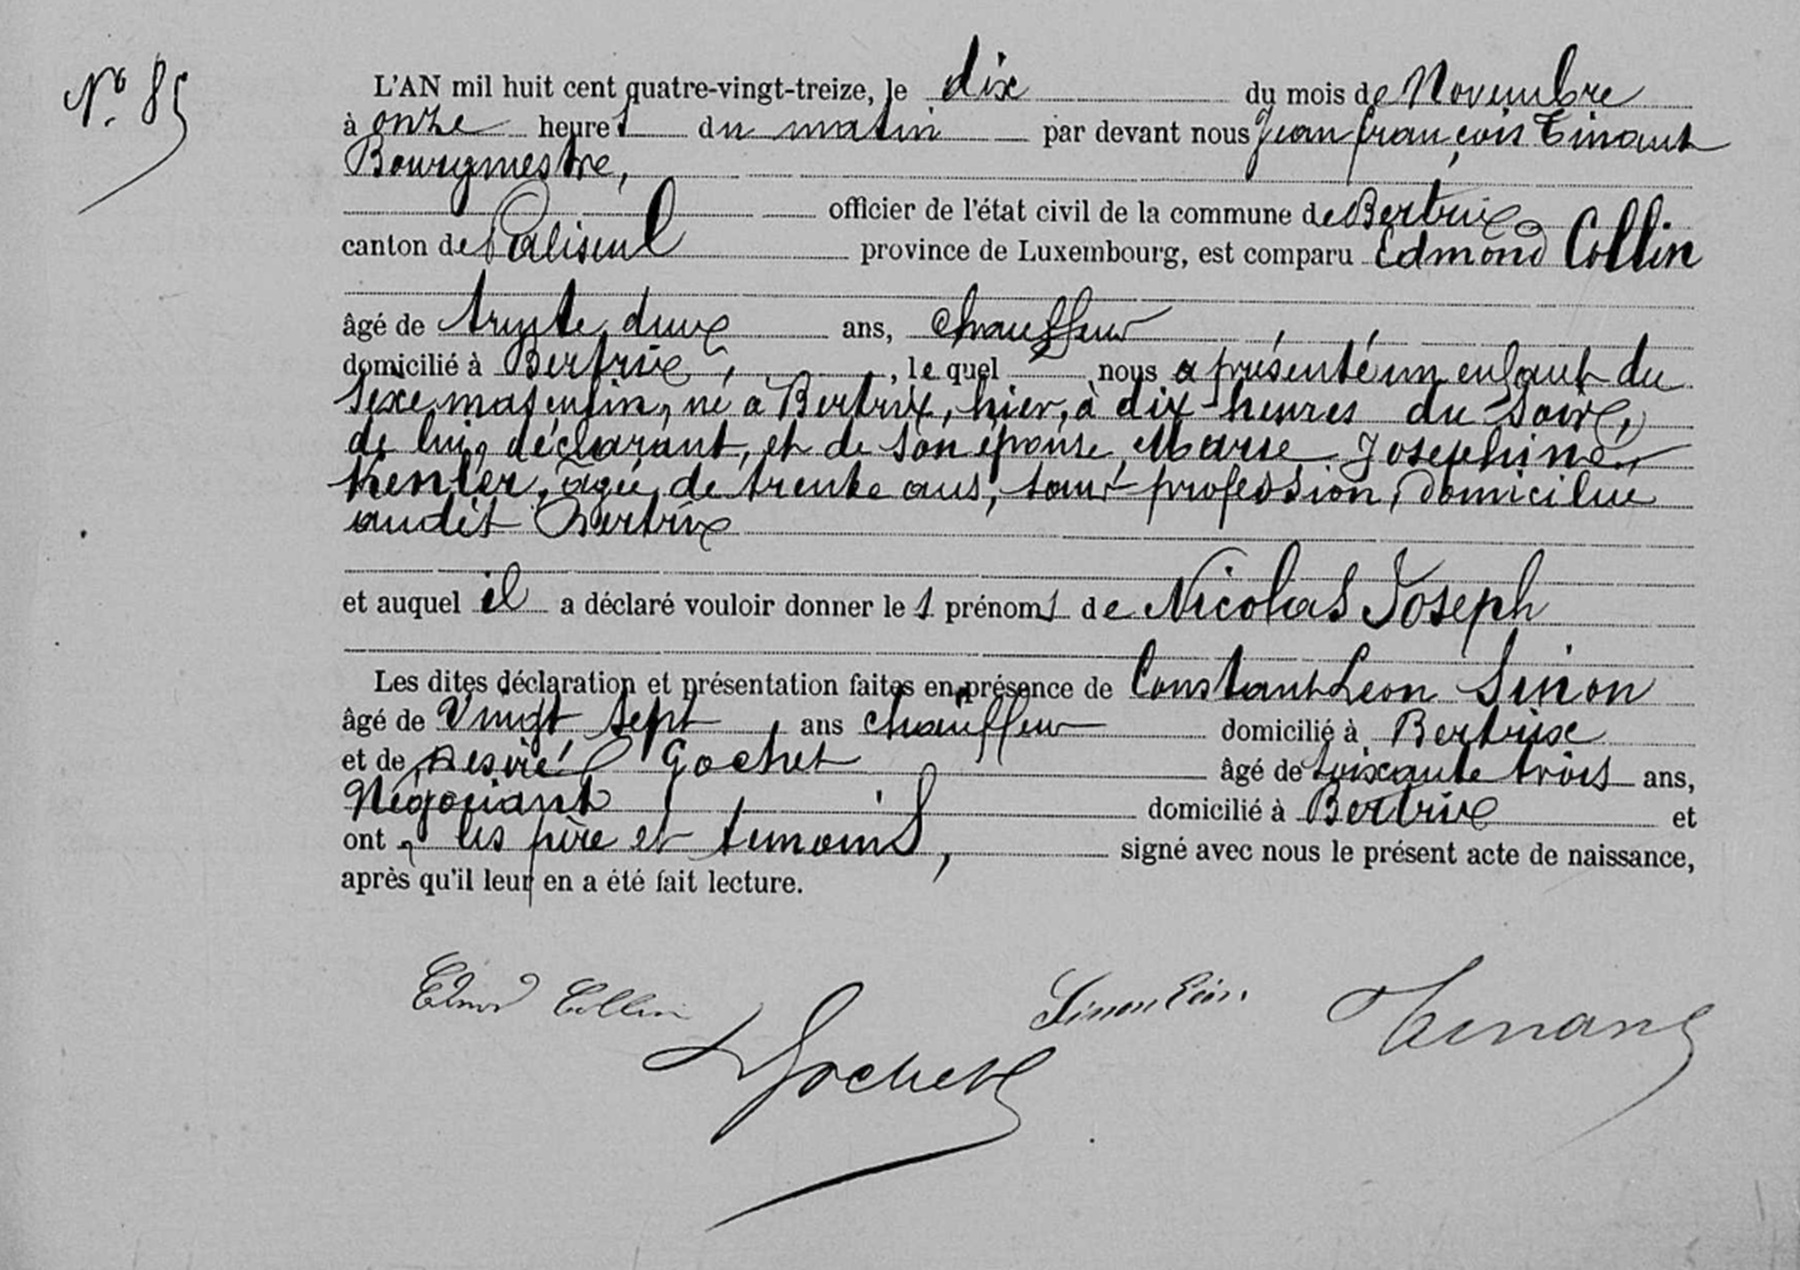 N° 85
L'AN mil huit cent quatre-vingt-treize, le dix du mois de Novembre
à onze heures du matin par devant nous Jean françois Tinant
Bourgmestre,
officier de l'état civil de la commune de Bertrix
canton de Paliseul province de Luxembourg, est comparu Edmond Collin
âgé de trente deux ans, chauffeur
domicilié à Bertrix, , le quel nous a présenté un enfant du
sexe masculin, né à Bertrix, hier, à dix heures du soir,
de lui, déclarant, et de son épouse, Marie Josephine
Kenler, âgée, de trente ans, sans profession, domiciliée
audit Bertrix
et auquel il a déclaré vouloir donner les prénoms de Nicolas Joseph
Les dites déclaration et présentation faites en présence de Constant Léon Sinon
âgé de vingt sept ans chauffeur domicilié à Bertrix
et de Désiré Gochet âgé de soixante trois ans,
Négociant domicilié à Bertrix et
ont, les père et témoins, signé avec nous le présent acte de naissance,
après qu'il leur en a été fait lecture.
Edmond Collin Sinon Léon. Tinant
D Gochet